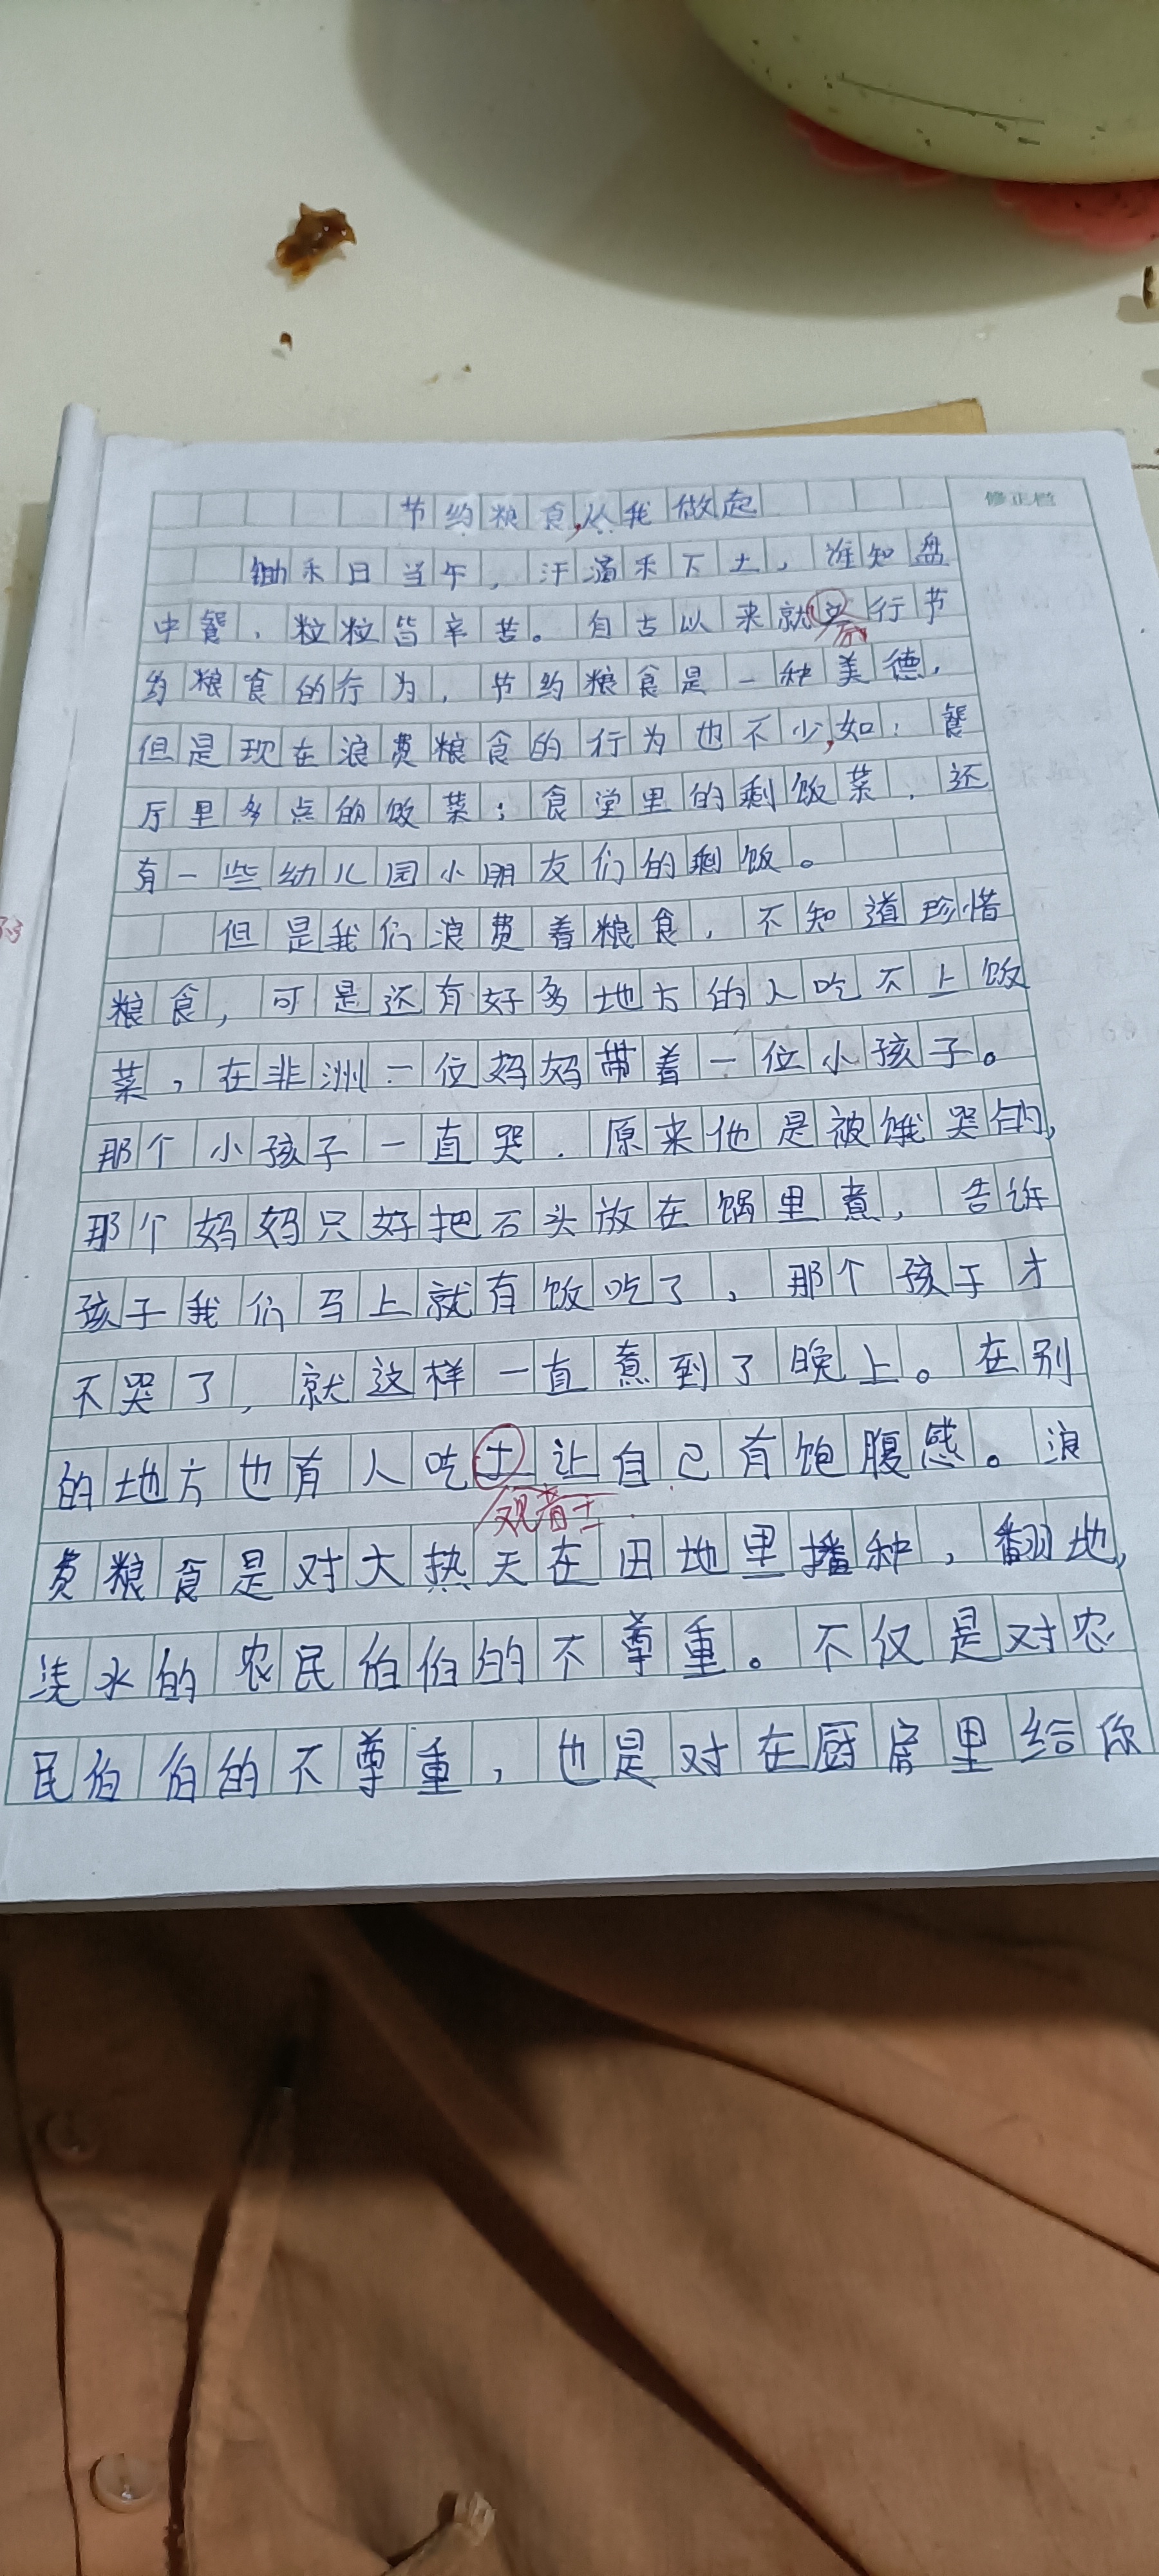 修正栏
节约粮食,从我做起
锄禾日当午，汗滴禾下土，谁知盘
中餐，粒粒皆辛苦。自古以来就行节
约粮食的行为，节约粮食是一种美德，
但是现在浪费粮食的行为也不少,如：餐
厅里多点的饭菜；食堂里的剩饭菜，还
有一些幼儿园小朋友们的剩饭。
但是我们浪费着粮食，不知道珍惜
粮食，可是还有好多地方的人吃不上饭
菜，在非洲一位妈妈带着一位小孩子。
那个小孩子一直哭．原来他是被饿哭的，
那个妈妈只好把石头放在锅里煮，告诉
孩子我们马上就有饭吃了，那个孩子才
不哭了，就这样一直煮到了晚上。在别
的地方也有人吃土让自己有饱腹感。浪
观音土
费粮食是对大热天在田地里播种，翻地，
浇水的农民伯伯的不尊重。不仅是对农
民伯伯的不尊重，也是对在厨房里给你